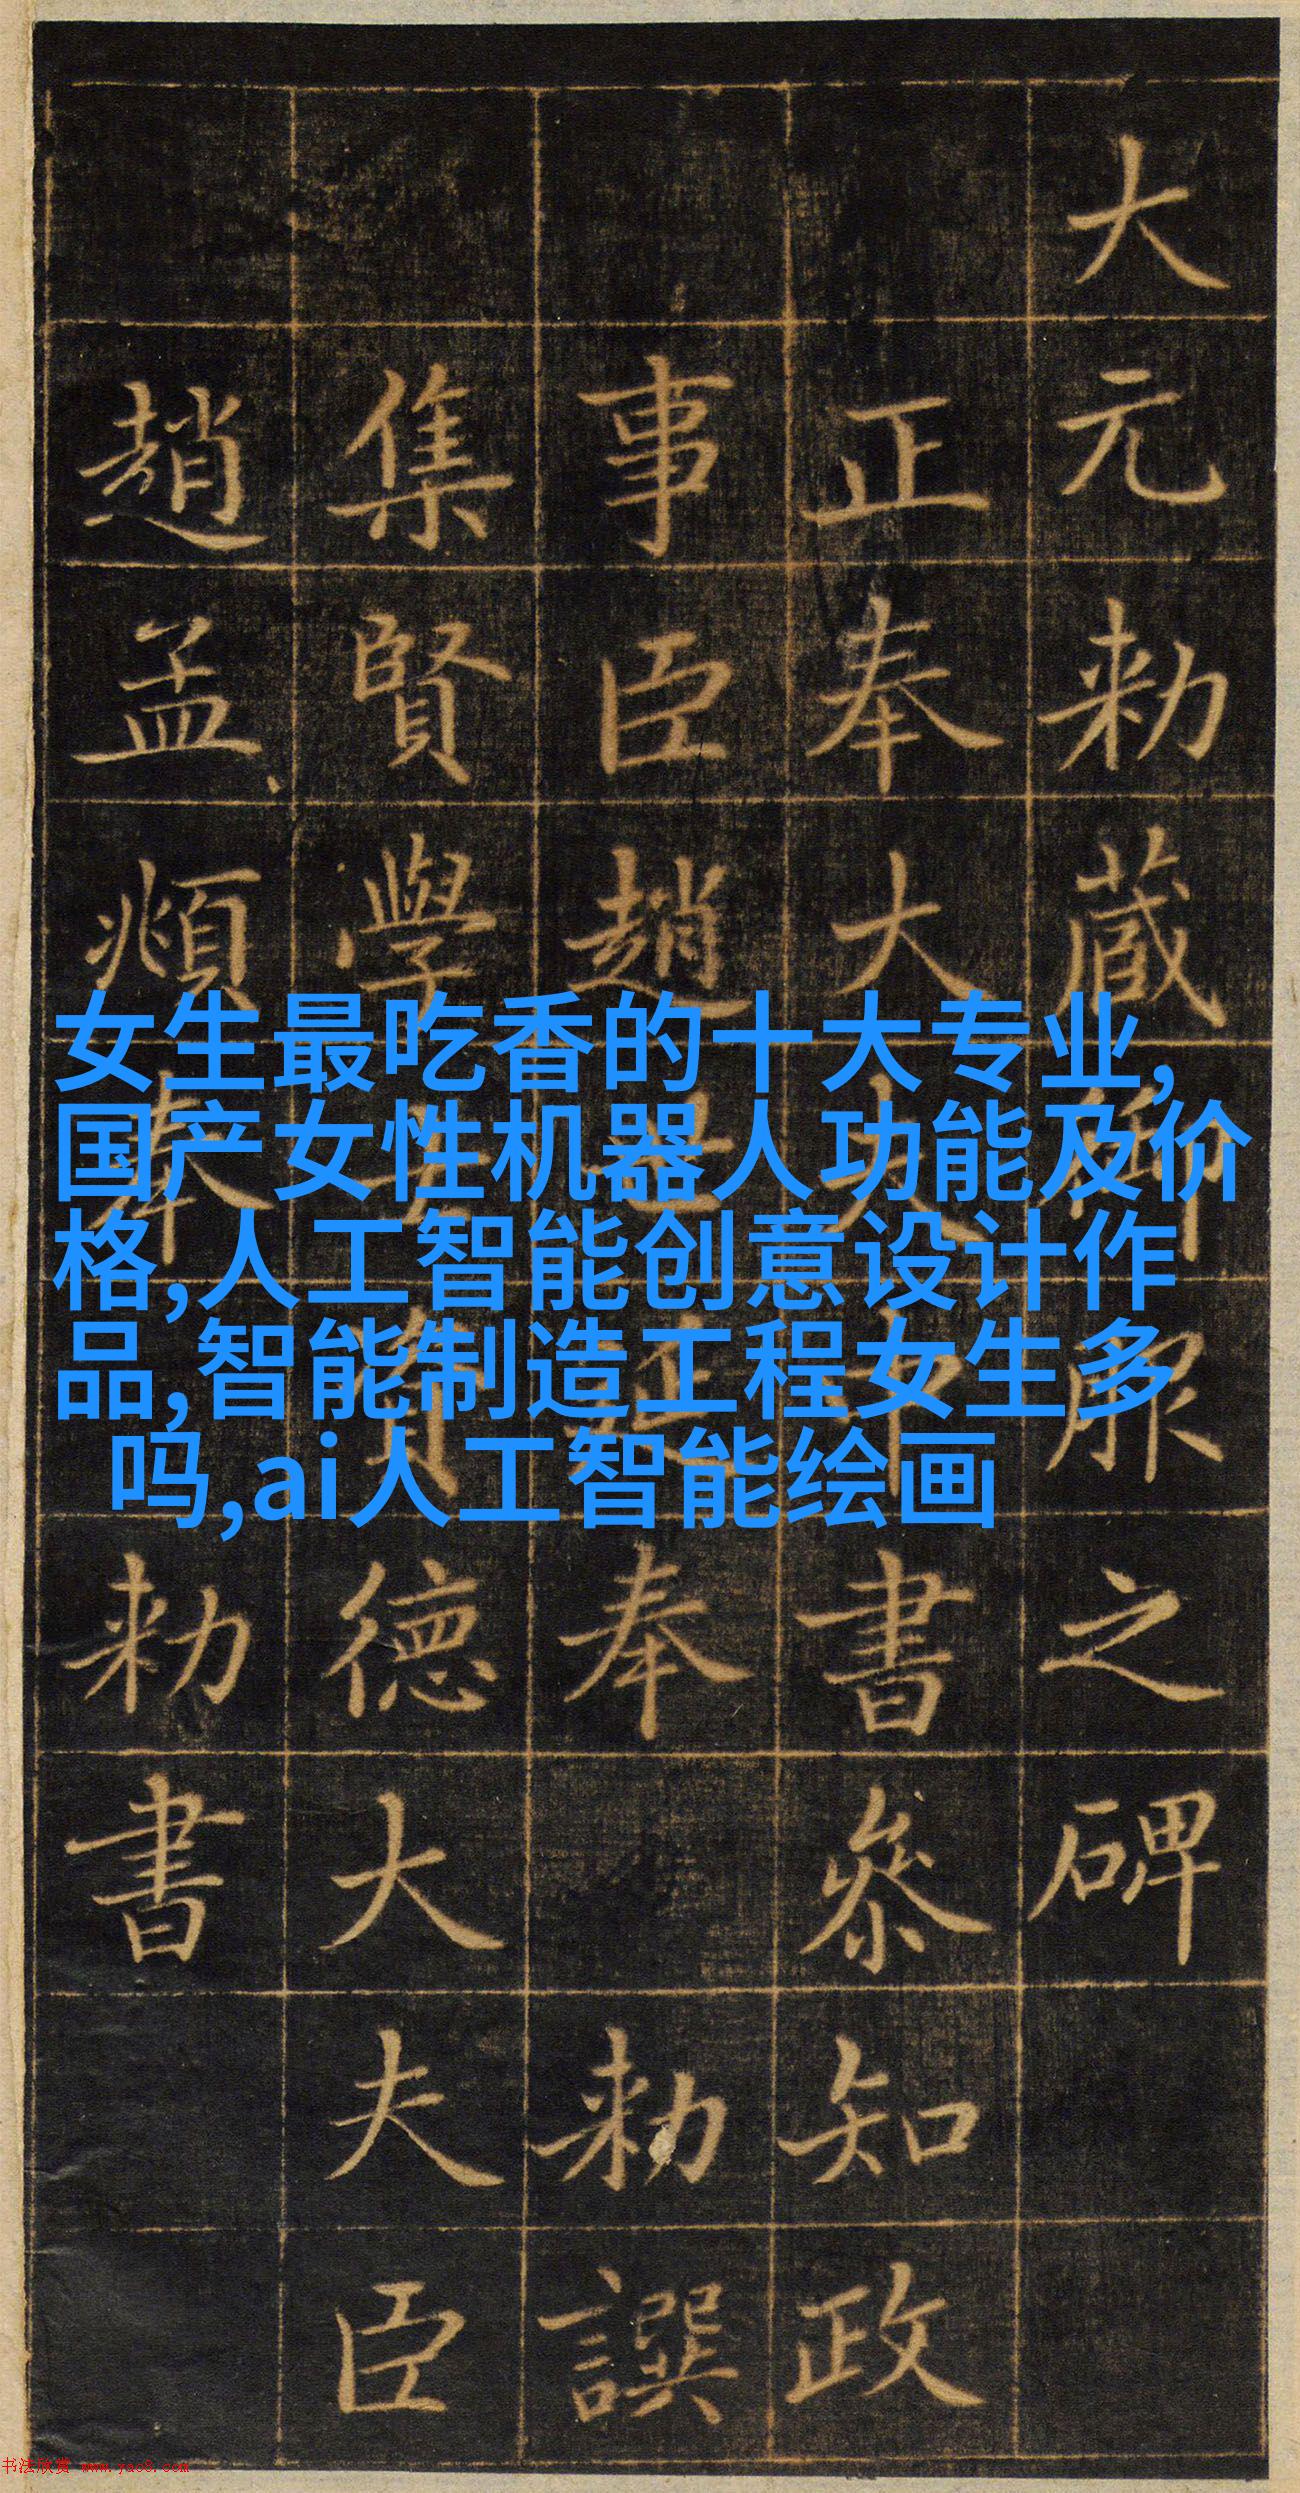 大元勑藏御服之碑
正奉大夫中書叅知政
事臣趙世延奉 勑譔
集賢學士資德大夫臣
趙孟頫奉 勑書
女生最吃香的十大专业,
国产女性机器人功能及价
格,人工智能创意设计作
品,智能制造工程女生多
吗,ai人工智能绘画
书法欣赏 www.yac8.com